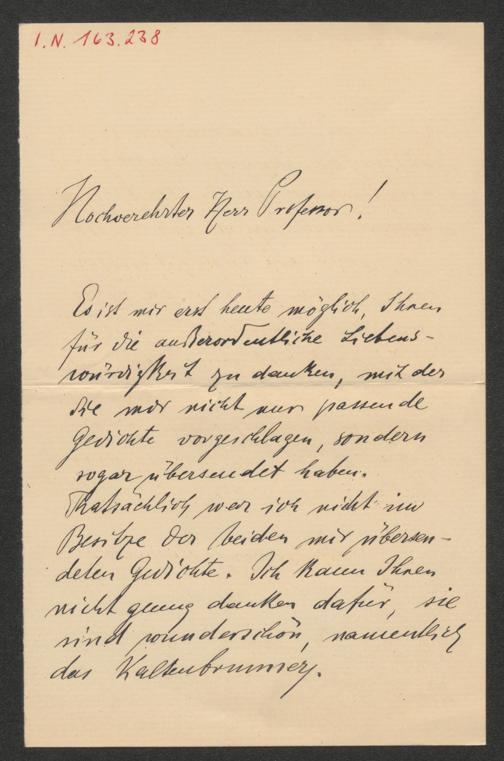 I.N. 163.238
Hochverehrter Herr Professor!
Es ist mir erst heute möglich, Ihnen
für die außerordentliche Liebens-
würdigkeit zu danken, mit der
Sie mir nicht nur passende
Gedichte vorgeschlagen, sondern
sogar übersendet haben.
Thatsächlich war ich nicht im
Besitze der beiden mir übersen-
deten Gedichte. Ich kann Ihnen
nicht genug danken dafür, sie
sind wunderschön, namentlich
das Kaltenbrunners.